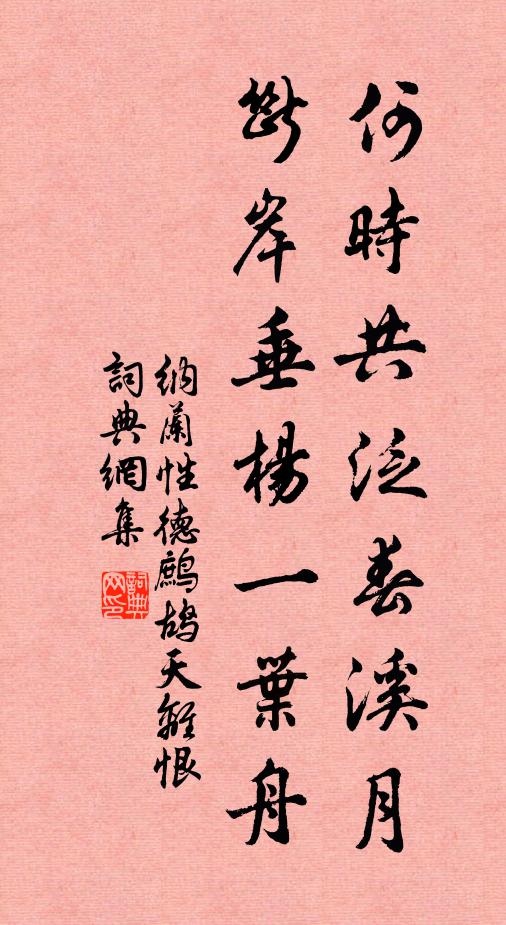 何時共泛春溪月
斷岸垂楊一葉舟
納蘭性德鷓鴣天離恨
詞典網集
詞典网印